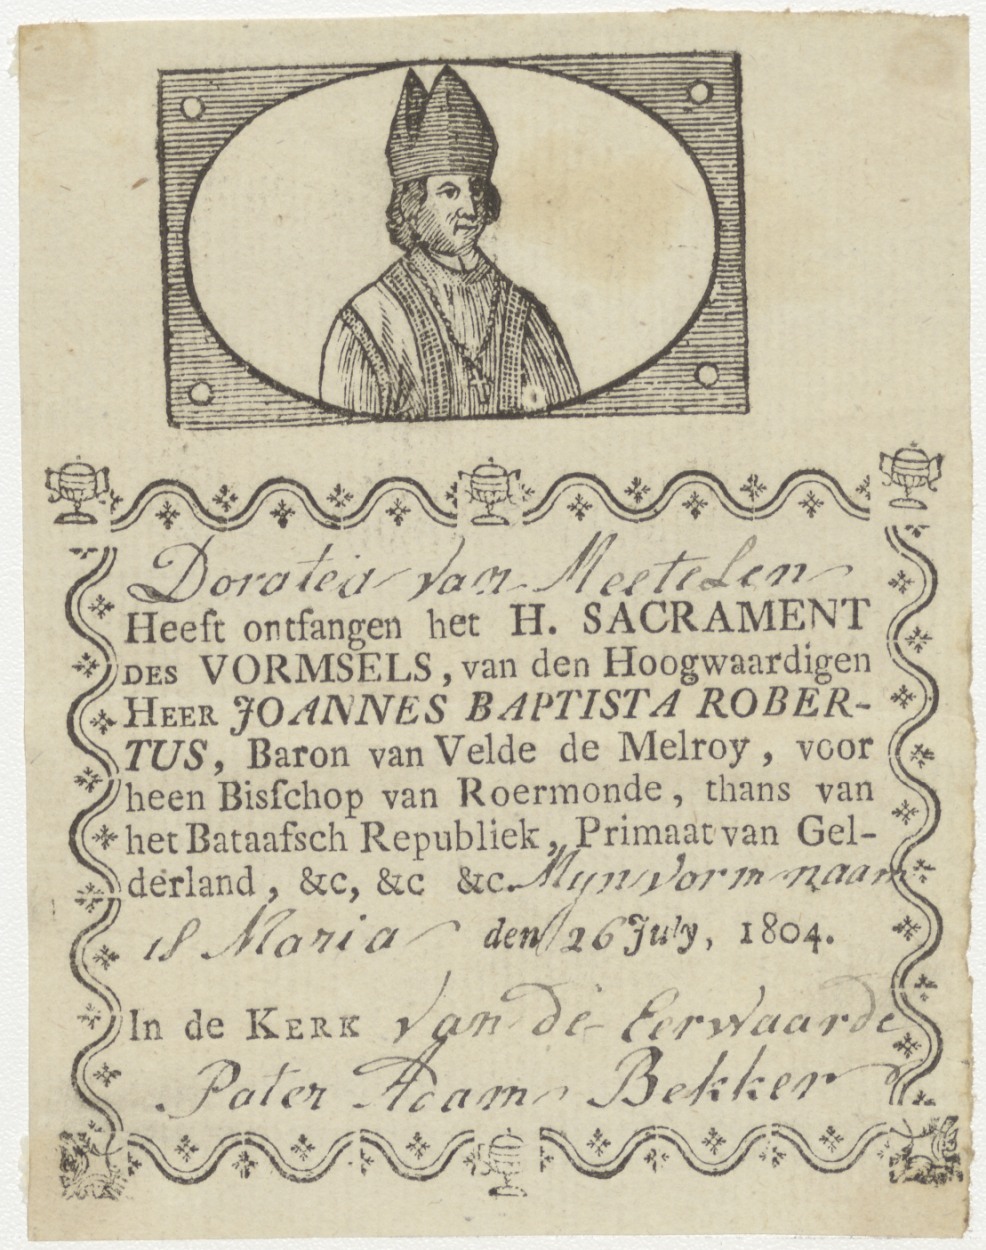 Doratea van Meetelen
Heeft ontfangen het H. SACRAMENT
DES VORMSELS, van den Hoogwaardigen
HEER JOANNES BAPTISTA ROBER-
TUS, Baron van Velde de Melroy, voor
heen Bisſchop van Roermonde, thans van
het Bataafsch Republiek, Primaat van Gel-
derland, &c, &c &c. Myn vorm naam
is Maria den 26 July, 1804.
In de KERK van de Eerwaarde
Pater Adam Bekker